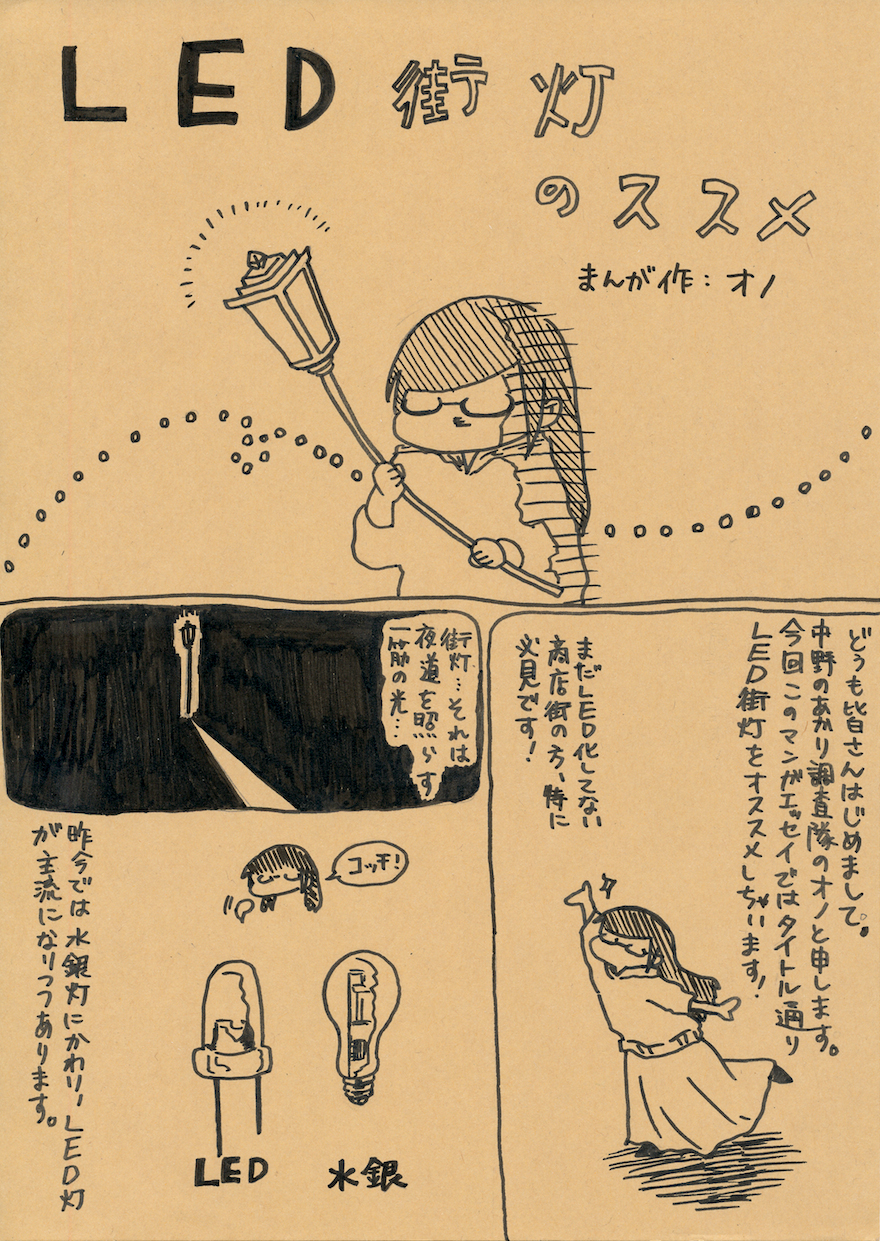 LED街灯
のススメ
まんが作：オノ
どうも皆さんはじめまして。
中野のあかり調査隊のオノと申します。
今回このマンガエッセイではタイトル通り
LED街灯をオススメしちゃいます！
まだLED化してない
商店街の方、特に
必見です！
街灯…それは
夜道を照らす
一筋の光…
コッチ！
LED
水銀
昨今では水銀灯にかわり、LED灯
が主流になりつつあります。